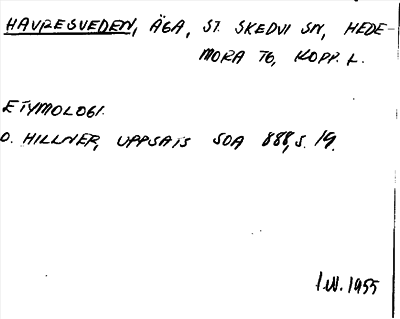 HAVRESVEDEN, ÄGA, ST. SKEDVI SN, HEDE-
MORA TG, KOPP. L.
ETYMOLOGI.
O. HILLNER, UPPSATS SOA 888, S. 19.
1955